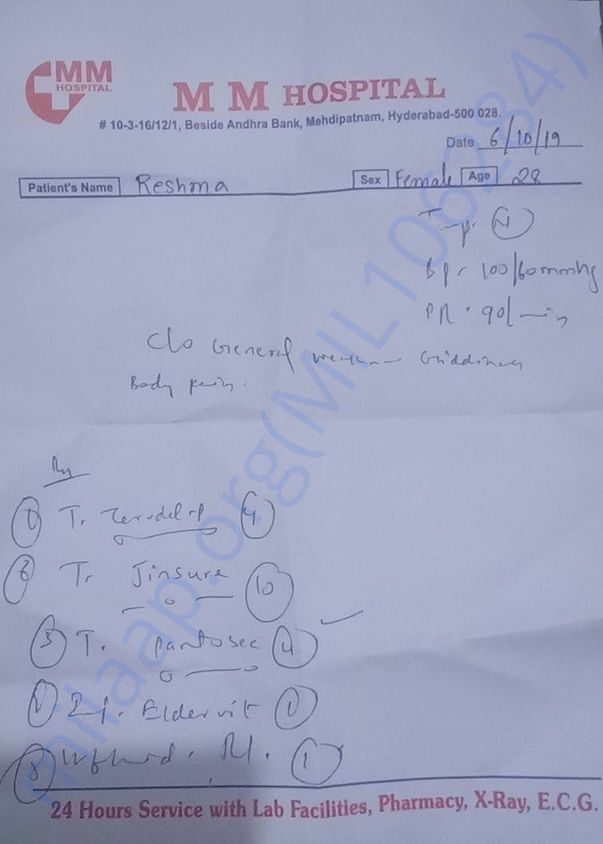 MM
HOSPITAL
M M HOSPITAL
# 10-3-16/12/1, Beside Andhra Bank, Mehdipatnam, Hyderabad-500 028.
Date 6/10/19
Patient's Name Reshma Sex Female Age 28
BP- 100/60mmHg
PR. 90/min
C/o General Giddiness
Body pain.
Rx
T. 4
T. Jinsure 10
3 T. pantosec 4
Eldervit 1
1
24 Hours Service with Lab Facilities, Pharmacy, X-Ray, E.C.G.
milaap.org(MIL106284)